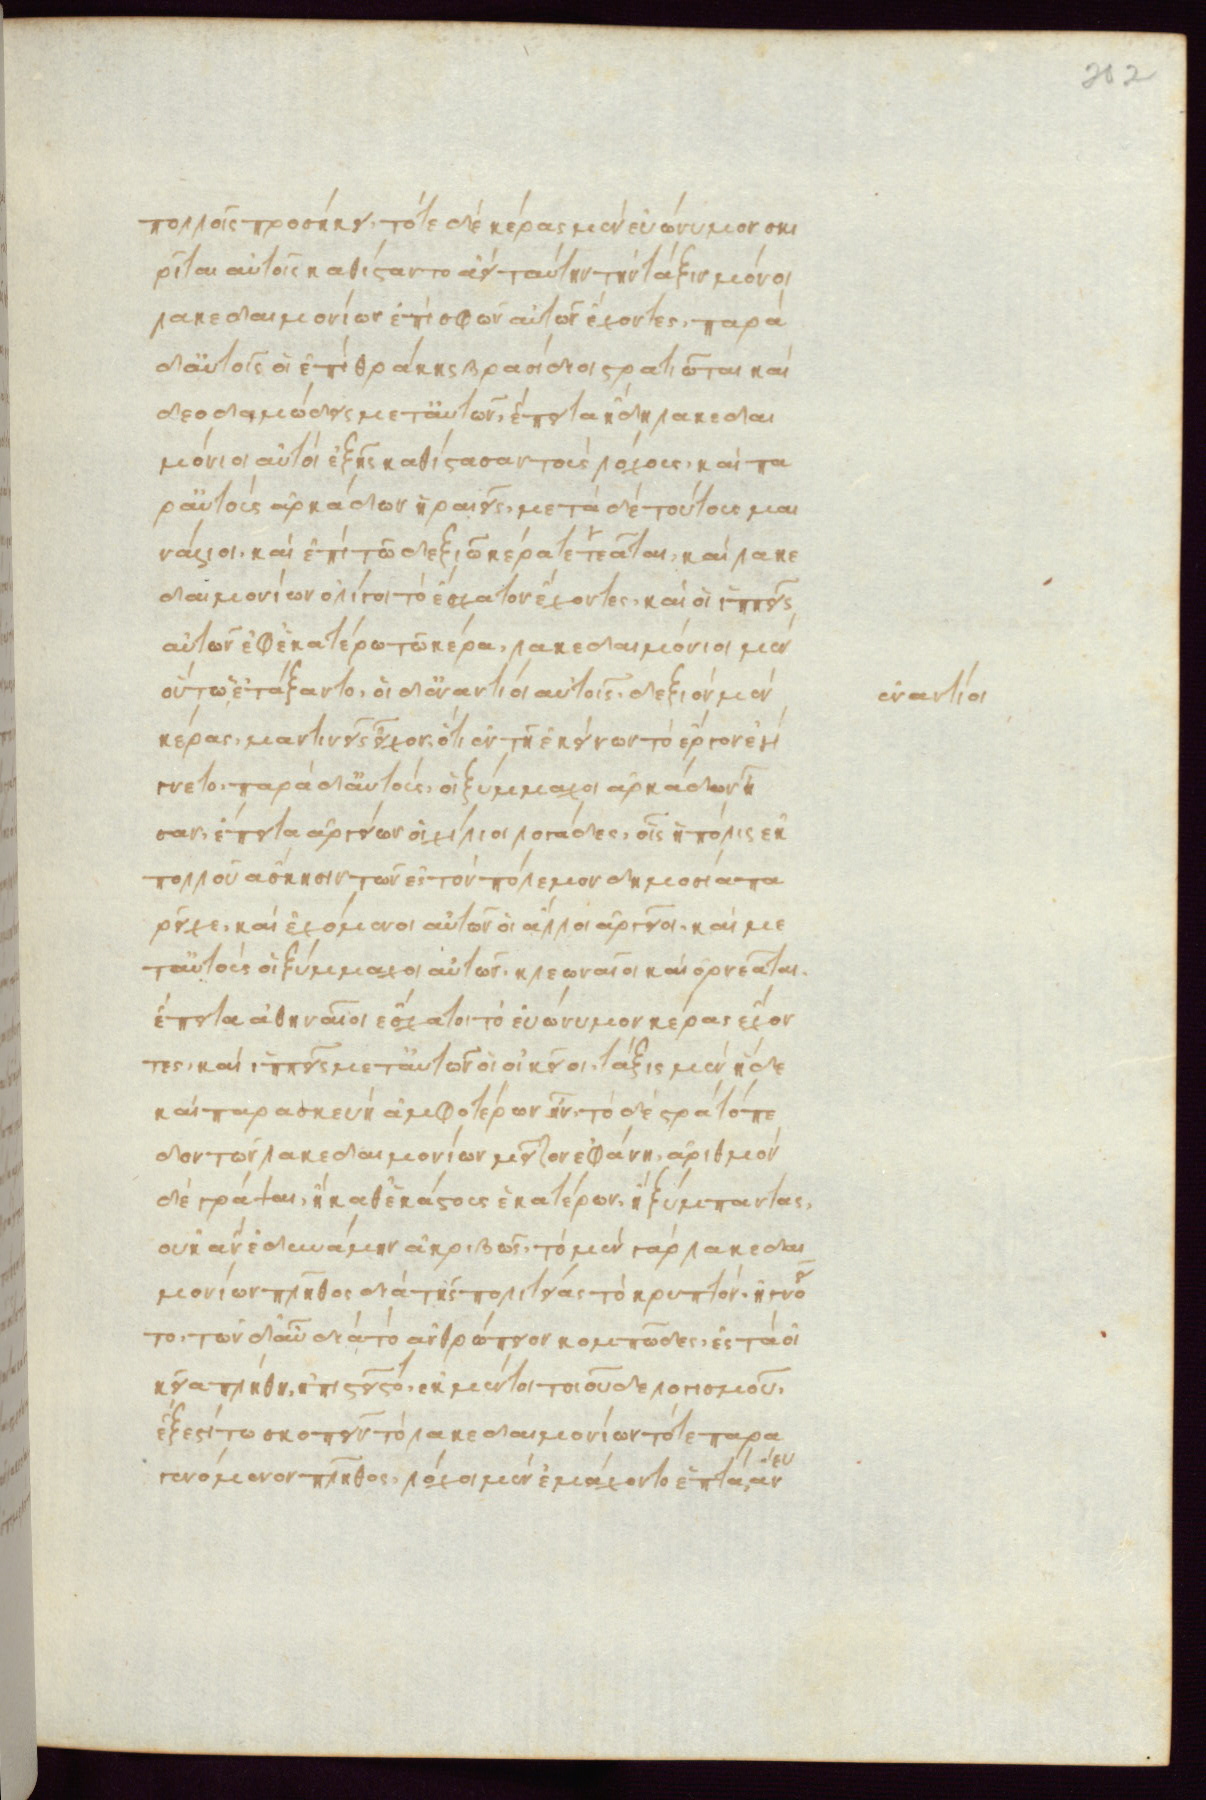 202
πολλοῖς προσήκει, τότε δὲ κέρας μὲν εὐώνυμον σκι
ρῖται αὐτοῖς καθίσταντο ἀεὶ ταύτην τὴν τάξιν μόνοι
λακεδαιμονίων ἐπὶ σφῶν αὐτῶν ἔχοντες, παρὰ
δ' αὐτοῖς οἱ ἐπὶ θράκης βρασίδιοι στρατιῶται καὶ
δεοδαμώδεις μετ' αὐτῶν, ἔπειτα ἤδη λακεδαι
μόνιοι αὐτοὶ ἑξῆς καθίστασαν τοὺς λόχους, καὶ πα
ρ' αὐτοὺς ἀρκάδων ἡραιεῖς, μετὰ δὲ τούτους μαι
νάλιοι, καὶ ἐπὶ τῶ δεξιῶ κέρατε τεγεᾶται, καὶ λακε
δαιμονίων ὀλίγοι τὸ ἔσχατον ἔχοντες, καὶ οἱ ἱππεῖς
αὐτῶν ἐφ' ἑκατέρω τῶ κέρα, λακεδαιμόνιοι μὲν
οὕτω ἐτάξαντο, οἱ δ' ἐναντίοι αὐτοῖς, δεξιὸν μὲν
ἐναντίοι
κέρας, μαντινεῖς εἶχον, ὅτι ἐν τῆ ἐκείνων τὸ ἔργον ἐγί
γνετο, παρὰ δ' αὐτοὺς, οἱ ξύμμαχοι ἀρκάδων ἦ
σαν, ἔπειτα ἀργείων οἱ χίλιοι λογάδες, οἷς ἡ πόλις ἐκ
πολλοῦ ἄσκησιν τῶν ἐς τὸν πόλεμον δημοσία πα
ρεῖχε, καὶ ἐχόμενοι αὐτῶν οἱ ἄλλοι ἀργεῖοι, καὶ με
τ' αὐτοὺς οἱ ξύμμαχοι αὐτῶν, κλεωναῖοι καὶ ὀρνεᾶται.
ἔπειτα ἀθηναῖοι ἔσχατοι τὸ εὐώνυμον κέρας ἔχον
τες, καὶ ἱππεῖς μετ' αὐτῶν οἱ οἰκεῖοι, τάξις μὲν ἥδε
καὶ παρασκευὴ ἀμφοτέρων ἦν, τὸ δὲ στρατόπε
δον τῶν λακεδαιμονίων μεῖζον ἐφάνη, ἀριθμὸν
δὲ γράψαι, ἢ καθ' ἑκάστους ἑκατέρων, ἢ ξύμπαντας,
οὐκ ἂν ἐδυνάμην ἀκριβῶς, τὸ μὲν γὰρ λακεδαι
μονίων πλῆθος διὰ τῆς πολιτείας τὸ κρυπτόν, ἠγνοεῖ
το, τῶν δ' αὖ διὰ τὸ ἀνθρώπειον κομπῶδες, ἐς τὰ οἰ
κεῖα πλήθη, ἠπιστεῖτο, ἐκ μέντοι τοιοῦδε λογισμοῦ,
ἔξεστί τω σκοπεῖν τὸ λακεδαιμονίων τότε παρα
γενόμενον πλῆθος, λόχοι μὲν ἐμάχοντο ἑπτὰ, ἄνευ